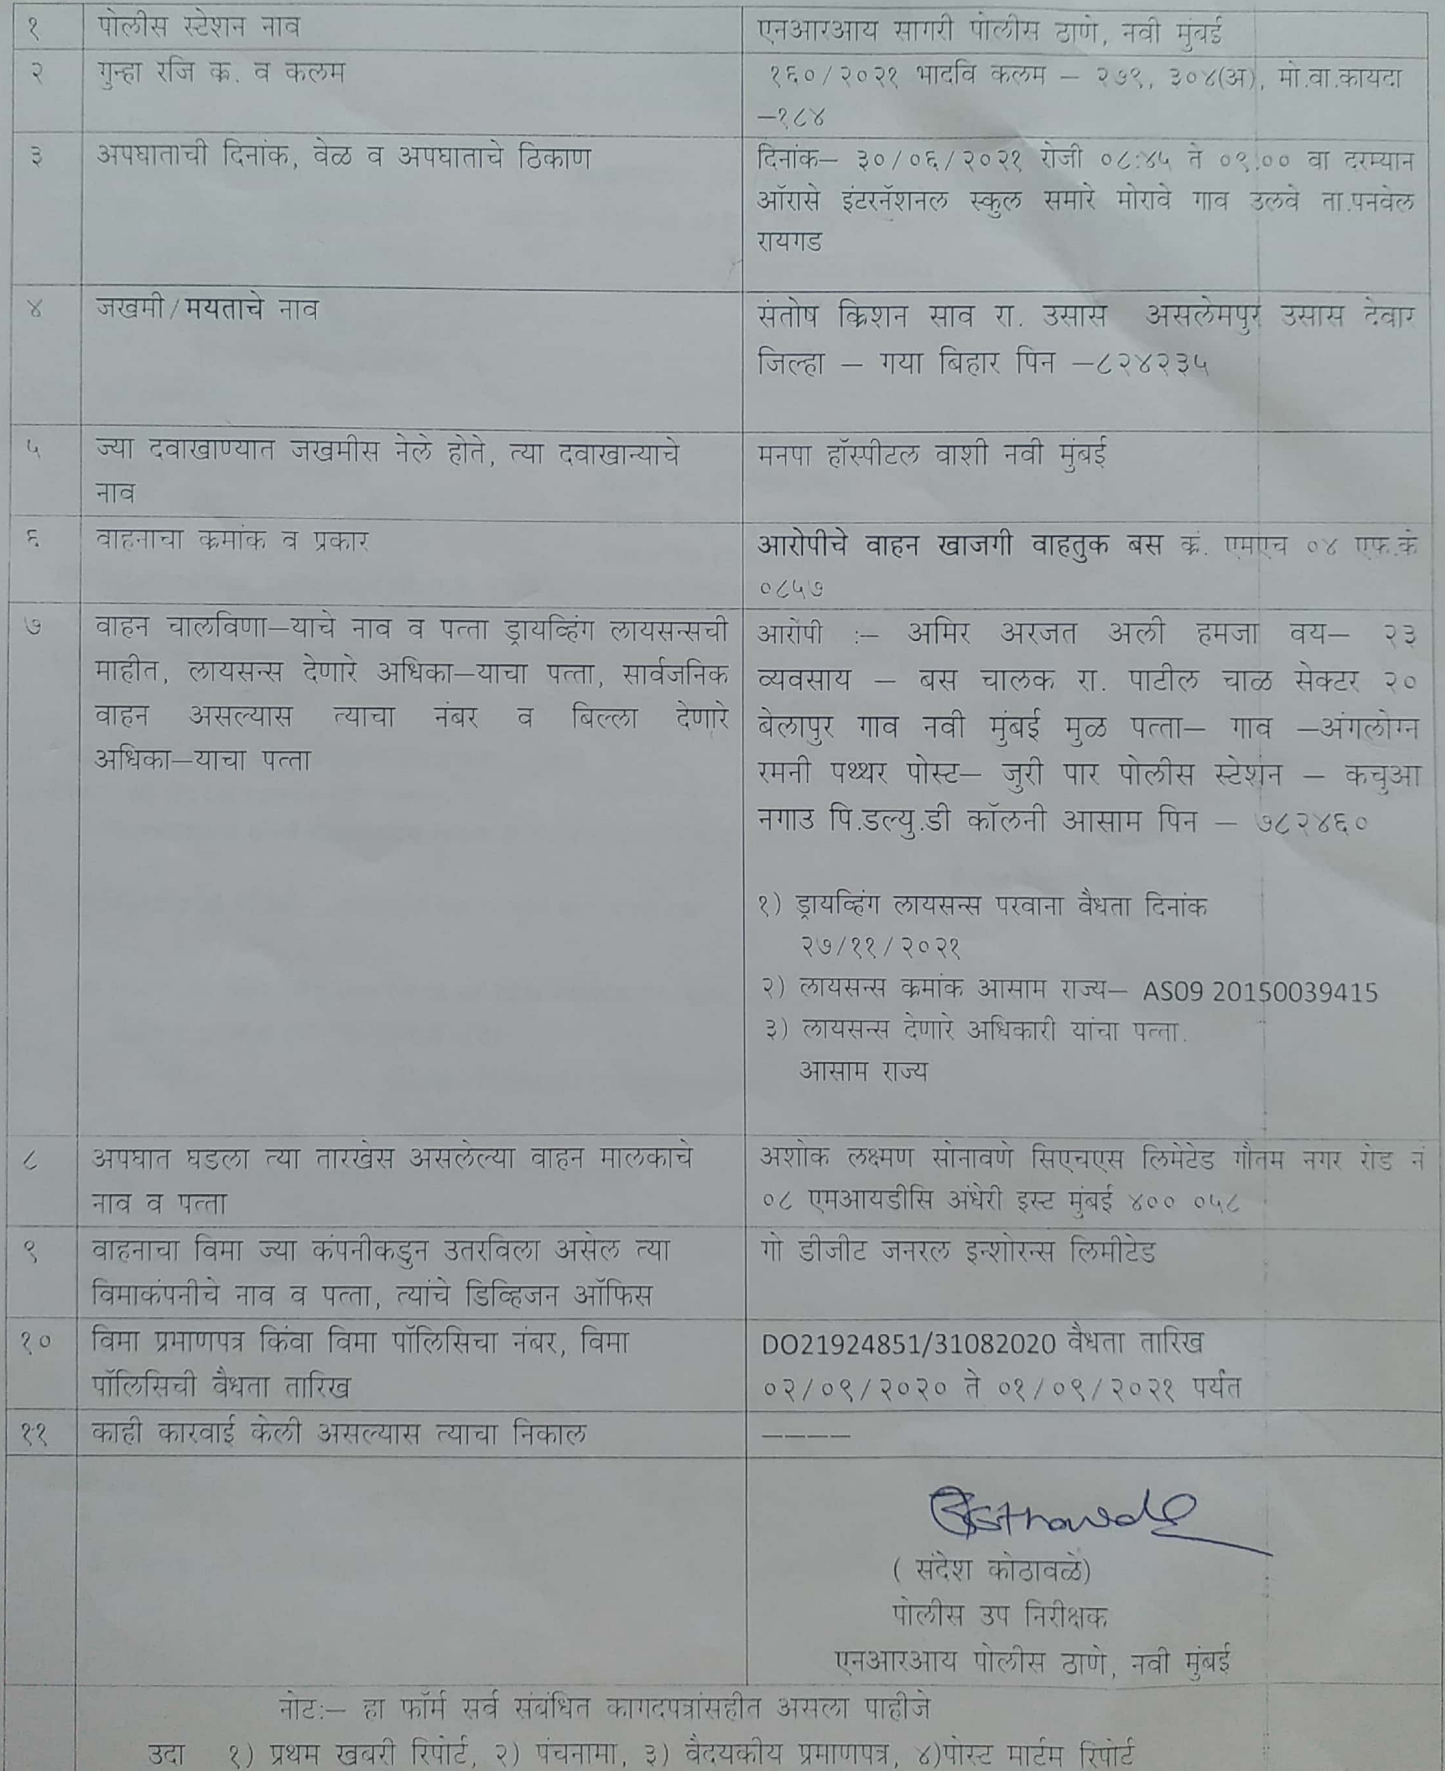 १ पोलीस स्टेशन नाव एनआरआय सागरी पोलीस ठाणे, नवी मुंबई
२ गुन्हा रजि क्र. व कलम १६०/२०२१ भादवि कलम – २७९, ३०४(अ), मो.वा.कायदा
–१८४
३ अपघाताची दिनांक, वेळ व अपघाताचे ठिकाण दिनांक– ३०/०६/२०२१ रोजी ०८:४५ ते ०९:०० वा दरम्यान
ऑरासे इंटरनॅशनल स्कुल समारे मोरावे गाव उलवे ता.पनवेल
रायगड
४ जखमी/मयताचे नाव संतोष क्रिशन साव रा. उसास असलेमपुर उसास देवार
जिल्हा – गया बिहार पिन –८२४२३५
५ ज्या दवाखाण्यात जखमीस नेले होते, त्या दवाखान्याचे मनपा हॉस्पीटल वाशी नवी मुंबई
नाव
६ वाहनाचा क्रमांक व प्रकार आरोपीचे वाहन खाजगी वाहतुक बस क्रं. एमएच ०४ एफ.के
०८५७
७ वाहन चालविणा–याचे नाव व पत्ता ड्रायव्हिंग लायसन्सची आरोपी :– अमिर अरजत अली हमजा वय– २३
माहीत, लायसन्स देणारे अधिका–याचा पत्ता, सार्वजनिक व्यवसाय – बस चालक रा. पाटील चाळ सेक्टर २०
वाहन असल्यास त्याचा नंबर व बिल्ला देणारे बेलापुर गाव नवी मुंबई मुळ पत्ता– गाव –अंगलोग्न
अधिका–याचा पत्ता रमनी पथ्थर पोस्ट– जुरी पार पोलीस स्टेशन – कचुआ
नगाउ पि.डल्यु.डी कॉलनी आसाम पिन – ७८२४६०
१) ड्रायव्हिंग लायसन्स परवाना वैधता दिनांक
२७/११/२०२१
२) लायसन्स क्रमांक आसाम राज्य– AS09 20150039415
३) लायसन्स देणारे अधिकारी यांचा पत्ता.
आसाम राज्य
८ अपघात घडला त्या तारखेस असलेल्या वाहन मालकाचे अशोक लक्ष्मण सोनावणे सिएचएस लिमेटेड गौतम नगर रोड नं
नाव व पत्ता ०८ एमआयडीसि अंधेरी इस्ट मुंबई ४०० ०५८
९ वाहनाचा विमा ज्या कंपनीकडुन उतरविला असेल त्या गो डीजीट जनरल इन्शोरन्स लिमीटेड
विमाकंपनीचे नाव व पत्ता, त्यांचे डिव्हिजन ऑफिस
१० विमा प्रमाणपत्र किंवा विमा पॉलिसिचा नंबर, विमा DO21924851/31082020 वैधता तारिख
पॉलिसिची वैधता तारिख ०२/०९/२०२० ते ०१/०९/२०२१ पर्यंत
११ काही कारवाई केली असल्यास त्याचा निकाल ––––
( संदेश कोठावळे)
पोलीस उप निरीक्षक
एनआरआय पोलीस ठाणे, नवी मुंबई
नोट:– हा फॉर्म सर्व संबंधित कागदपत्रांसहीत असला पाहीजे
उदा १) प्रथम खबरी रिपोर्ट, २) पंचनामा, ३) वैदयकीय प्रमाणपत्र, ४)पोस्ट मार्टम रिपोर्ट